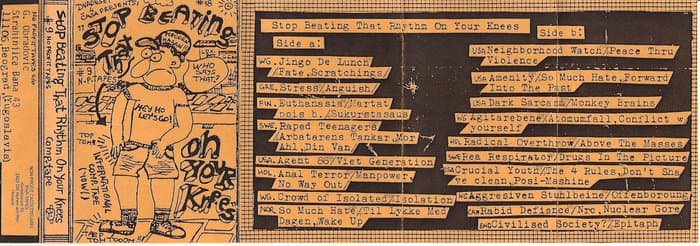 NO PROFIT TAPES C/O
G. Obradović
Strahinjića Bana 43
11106, Beograd (Yugoslavia)
Stop Beating That Rhythm On Your Knees
#9 NO PROFIT TAPES
COMP. TAPE
PRESENTS:
STOP BEATING
That
Rhythm
#9
N.P. TAPES
WHO
SAYS
THAT?
HEY HO
LET'S GO!
TOP
TEN!!
INTERNATIONAL
COMP. TAPE
NOW!
ON
YOUR
KNEES
Stop Beating That Rhythm On Your Knees
Side a:
WG. Jingo De Lunch/
Fate, Scratchings
GRE. Stress/Anguish
FIN. Euthanasia/Hartat
nois b./Sukurstasaus
SWE. Raped Teenagers/
Arbatarens Tankar, Mor
Ahl, Din Van
USA. Agent 86/Viet Generation
HOL. Anal Terror/Manpower,
No Way Out
WG. Crowd of Isolated/Isolation
NOR. So Much Hate/Til Lykke Med
Dagen, Wake Up
Side b:
USA Neighborhood Watch/Peace Thru
Violence
USA Amenity/So Much Hate, Forward
Into The Past
USA Dark Sarcasm/Monkey Brains
WG Agitarebene/Atomumfall, Conflict w
yourself
HO. Radical Overthrow/Above The Masses
SWE Rea Respirator/Drugs In The Picture
USA Crucial Youth/The 4 Rules, Don't Sha
ve clean, Posi-Mashine
WG Aggresiven Stuhlbeine/Offenboroung
CAN Rabid Defiance/Nrc, Nuclear Gore
ENG Civilised Society?/Epitaph